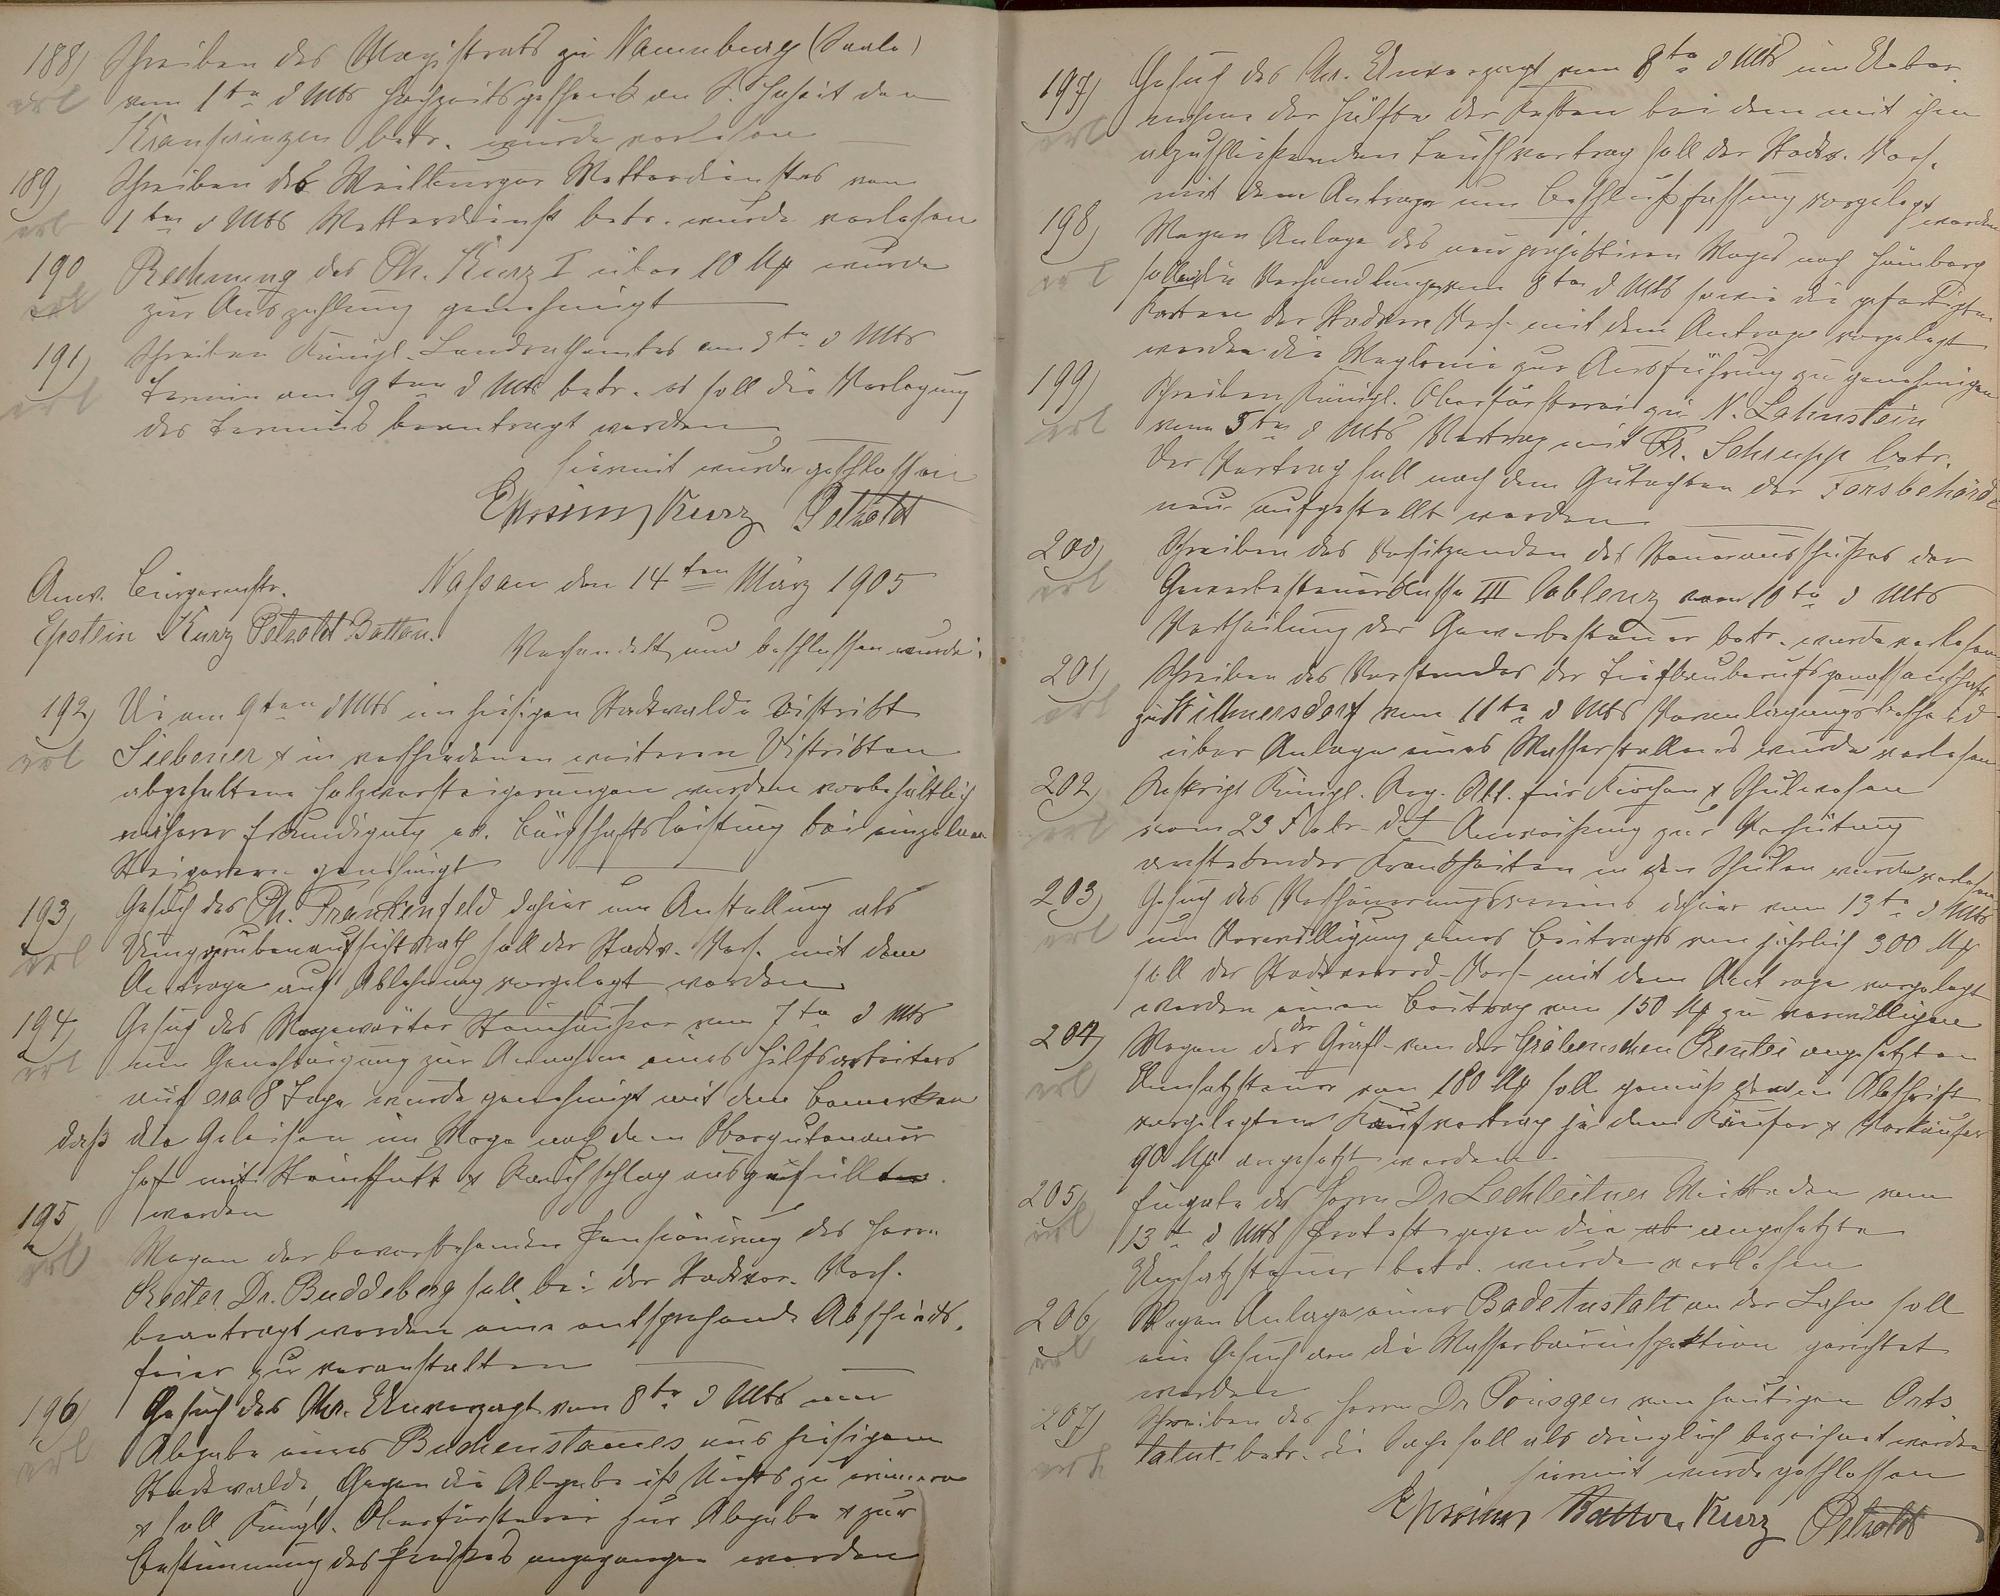 188) Schreiben des Magistrats zu Naumburg (Saale)
erl vom 1ten d Mts Hochzeitsgeschenk an S. Hoheit den
Kronprinzen betr. wurde verlesen
189) Schreiben des Weilburger Wetterdienstes vom
erl 1ten d Mts Wetterdienst betr. wurde verlesen
190 Rechnung des Ph. Kurz I über 10 Mk wurde
erl zur Auszahlung genehmigt
191) Schreiben Königl. Landrathsamtes vom 3ten d Mts
erl Termin am 9ten d Mts betr. es soll die Verlegung
des Termins beantragt werden
Hiermit wurde geschlossen
Epstein Kurz Petzoldt
Nassau den 14ten März 1905
Anw. Bürgermstr.
Epstein Kurz Petzoldt Batton.
Verhandelt und beschlossen wurde:
192) Die am 9ten d Mts im hiesigen Stadtwalde Distrikt
erl Siebener & in verschiedenen weiteren Distrikten
abgehaltene Holzversteigerungen wurden vorbehältlich
näherer Erkundigung ev. Bürgschaftsleistung bei einzelnen
Steigerern genehmigt
193) Gesuch des Ph. Frankenfeld dahier um Anstellung als
erl soll der Stadtv. Vers. mit dem
Antrage auf Ablehnung vorgelegt werden
194) Gesuch des Wegewärter Steinhäuser vom 7ten d Mts
erl um Genehmigung zur Annahme eines Hilfsarbeiters
auf ca 8 Tage wurde genehmigt mit dem Bemerken
daß die Geleisen im Wege nach dem Obergutenauer
Hof mit Steinschutt & Rauhschlag auszufüllen
werden
195 Wegen der bevorstehenden Pensionirung des Herrn
erl Rector Dr. Buddeberg soll bei der Stadtver. Vers.
beantragt werden eine entsprechende Abschieds-
feier zu veranstalten
196) Gesuch des Chr. Unverzagt vom 8ten d Mts um
erl Abgabe eines Buchenstames aus hiesigem
Stadtwalde, Gegen die Abgabe ist Nichts zu erinnern
& soll Königl. Oberförsterei zur Abgabe & zur
Bestimmung des Preises angegangen werden
197) Gesuch des Chr. Unverzagt vom 8ten d Mts um Ueber-
erl nahme der Hälfte der Kosten bei dem mit ihm
abzuschließenden Tauschvertrag soll der Stadtv. Vers.
mit dem Antrage um Beschlußfassung vorgelegt werden
198) Wegen Anlage des neu projektiren Weges nach Hömberg
erl sollen die Verhandlungen vom 8ten d Mts sowie die gefertigten
Karten der Stadtver. Vers. mit dem Antrage vorgelegt
werden die Weglinie zur Ausführung zu genehmigen
199) Schreiben Königl. Oberförsterei zu N. Lahnstein
erl vom 5ten d Mts Vertrag mit Fr. Schrupp betr.
Der Vertrag soll nach dem Gutachten der Forsbehörde
neu aufgestellt werden
200) Schreiben des Vorsitzenden des Steuerausschußes der
erl Gewerbesteuerklasse III Coblenz vom 10ten d Mts
Vertheilung der Gewerbesteuer betr. wurde verlesen
201) Schreiben des Vorstandes der Tiefbauberufsgenossenschaft
erl zu Wilmersdorf vom 11ten d Mts Veranlagungsbescheid
über Anlage eines Wasserstollens wurde verlesen
202) Reskript Königl. Reg. Abt. für Kirchen & Schulwesen
erl vom 23 Febr. d J Anweisung zur Verhütung
ansteckender Krankheiten in den Schulen wurde verlesen
203) Gesuch des Verschönerungsvereins dahier vom 13ten d Mts
erl um Verwilligung eines Beitrags von jährlich 300 Mk
soll der Stadtverord. Vers. mit dem Antrage vorgelegt
werden einen Beitrag von 150 Mk zu verwilligen
204) Wegen der der Gräfl. von der Gröbenschen Rentei angesetzten
erl Umsatzsteuer von 180 Mk soll gemäß Abschrift
vorgelegtem Kaufvertrag je dem Käufer & Verkäufer
90 Mk angesetzt werden.
205) Eingabe des Herrn Dr Lechleitner Wiesbaden vom
erl 13ten d Mts Protest gegen die angesetzte
Umsatzsteuer betr. wurde verlesen
206) Wegen Anlage einer Badeanstalt an der Lahn soll
erl ein Gesuch an die Wasserbauinspektion gerichtet
werden
207) Schreiben des Herrn Dr Poensgen vom heutigen Orts
erl tatut betr. die Sache soll als dringlich bezeichnet werden
Hiermit wurde geschlossen
Epstein Batton Kurz Petzoldt